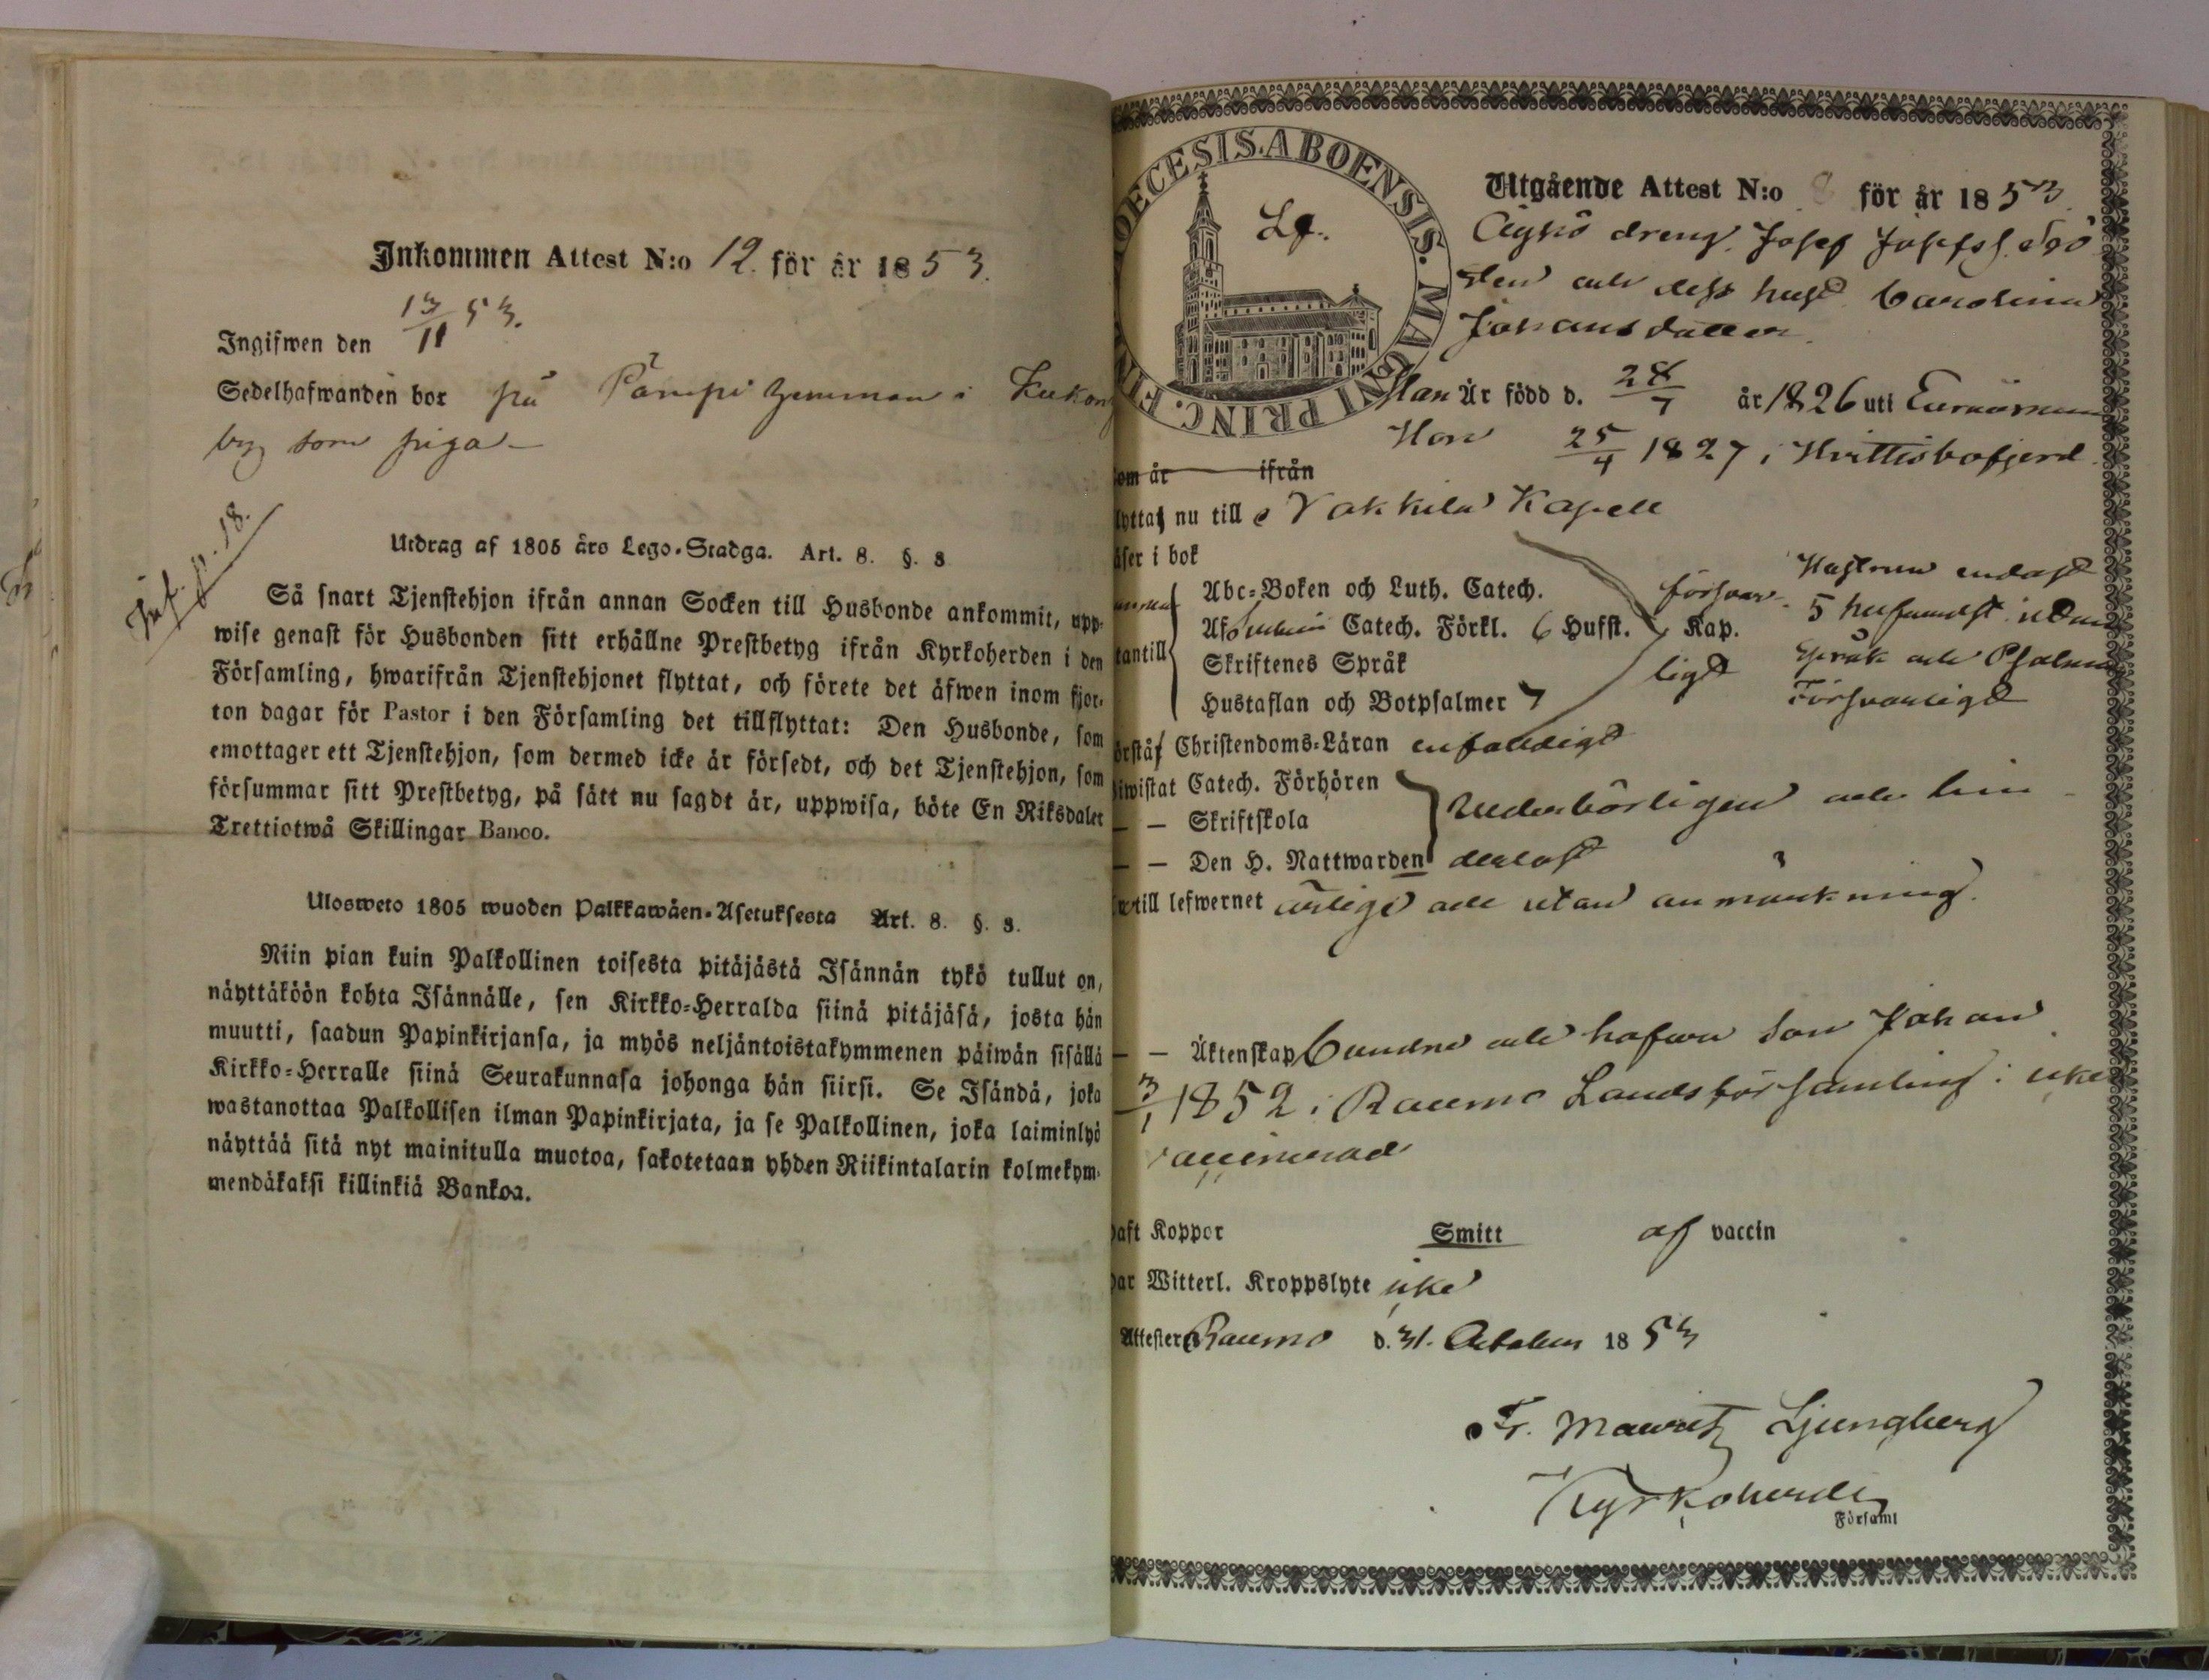 Inkommen Attest N:o 12. för år 1853.
Ingifwen den 13/11 53.
Sedelhafwanden bor på Pämpi hemman i
by som piga
Utdrag af 1805 års Lego-Stadga. Art. 8. §. 8
Så snart Tjenstehjon ifrån annan Socken till Husbonde ankommit, upp-
wise genast för Husbonden sitt erhållne Prestbetyg ifrån Kyrkoherden i den
Församling, hwarifrån Tjenstehjonet flyttat, och förete det äfwen inom fjor-
ton dagar för Pastor i den Församling det tillflyttat: Den Husbonde, som
emottager ett Tjenstehjon, som dermed icke är försedt, och det Tjenstehjon, som
försummar sitt Prestbetyg, på sätt nu sagdt är, uppwisa, böte En Riksdaler
Trettiotwå Skillingar Banco.
Ulosweto 1805 wuoden Palkkawäen-Asetuksesta Art. 8. §. 8.
Niin pian kuin Palkollinen toisesta pitäjästä Isännän tykö tullut on,
näyttäköön kohta Isännälle, sen Kirkko-Herralda siinä pitäjäsä, josta hän
muutti, saadun Papinkirjansa, ja myös neljäntoistakymmenen päiwän sisällä
Kirkko-Herralle siinä Seurakunnasa johonga hän siirsi. Se Isändä, joka
wastanottaa Palkollisen ilman Papinkirjata, ja se Palkollinen, joka laiminlyö
näyttää sitä nyt mainitulla muotoa, sakotetaan yhden Riikintalarin kolmekym-
mendäkaksi killinkiä Bankoa.
DIOECESIS. ABOENSIS. MAGNI PRINC. FIN
Utgående Attest N:o 8 för år 1853
dreng Josef Josefss.
och dess hust. Carolina
Johansdatter.
Han Är född d. 28/7 år 1826 uti
Hon 25/4 1827 i Hvittisbofjerd
som är ifrån
flyttat nu till Vakkila Kapell
läser i bok
Abc-Boken och Luth. Catech.
Catech. Förkl. 6 Hufst. 7 Kap.
utantill
Skriftenes Språk
Hustaflan och Botpsalmer 7
försvar-
ligt
Hustrun endast
5 hufvudst. utan
språk och Psalmer
Försvarligt
förstår Christendoms-Läran enfaldigt
biwistat Catech. Förhören
— — Skriftskola
— — Den H. Nattwarden
wederbörligen och hin-
derlöst
till lefwernet ärlige och utan anmärkning.
— — Äktenskap bundne och hafwa Son Johan
3/1 1852 i Raumo Landsförsamling; icke
vaccinerad
haft Koppor Smitt af vaccin
har Witterl. Kroppslyte icke
Attester. Raumo d. 31. October 1853
Fr. Mauritz Ljungberg
Kyrkoherde
Församl